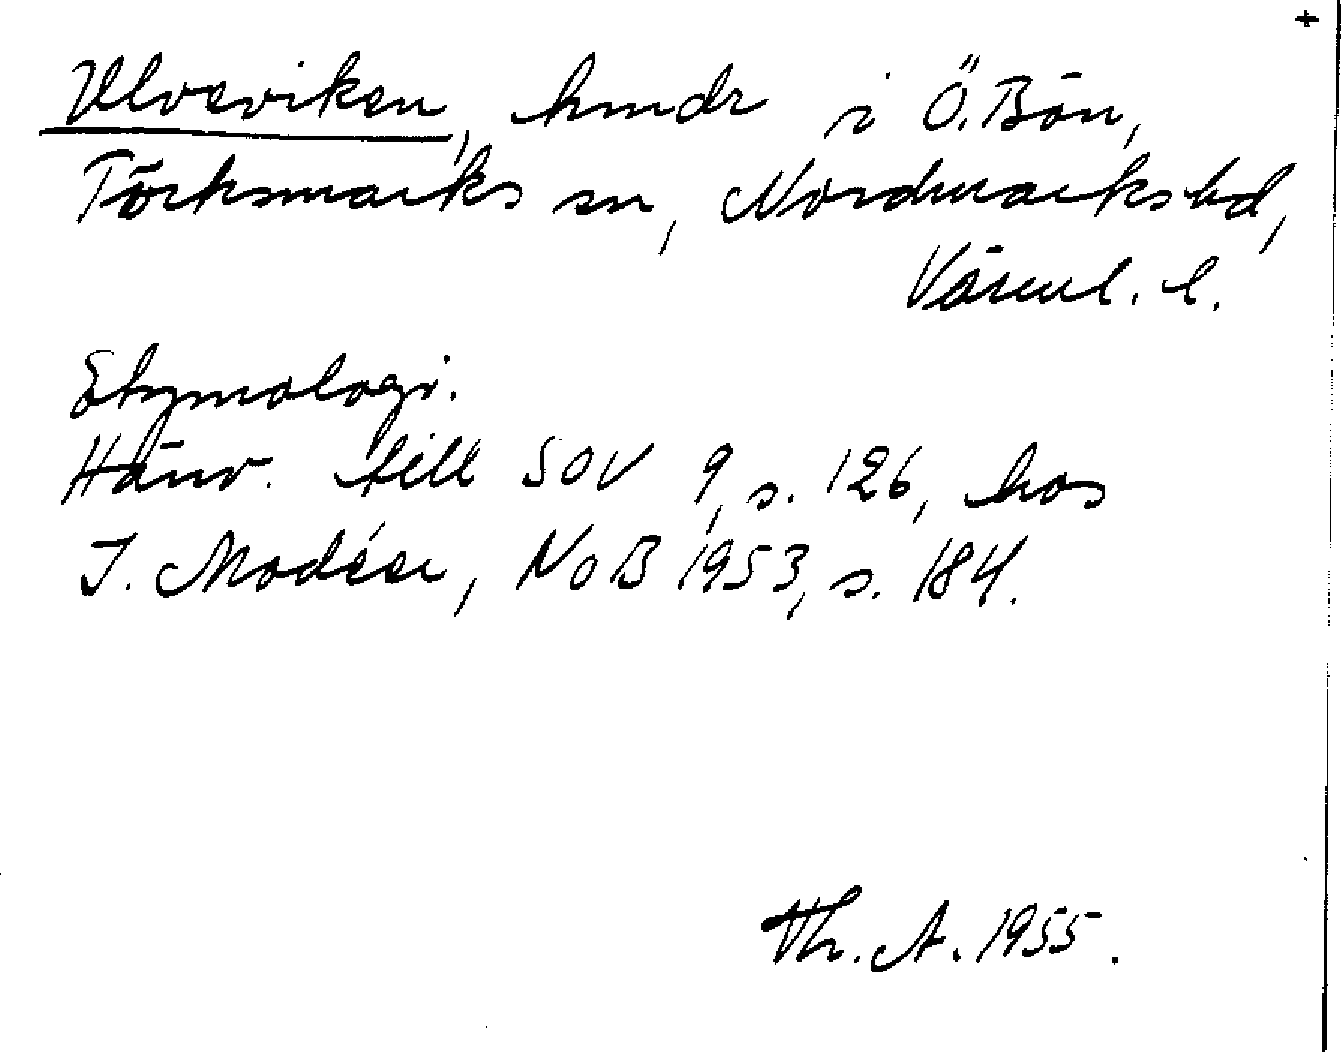 +
Ulveviken, hmdr i Ö. Bön,
Töcksmarks sn, Nordmarks hd,
Värml. l.
Etymologi.
Hänv. till SOV 9, s. 126, hos
I. Modéer, NoB 1953, s. 184.
Th. A. 1955.